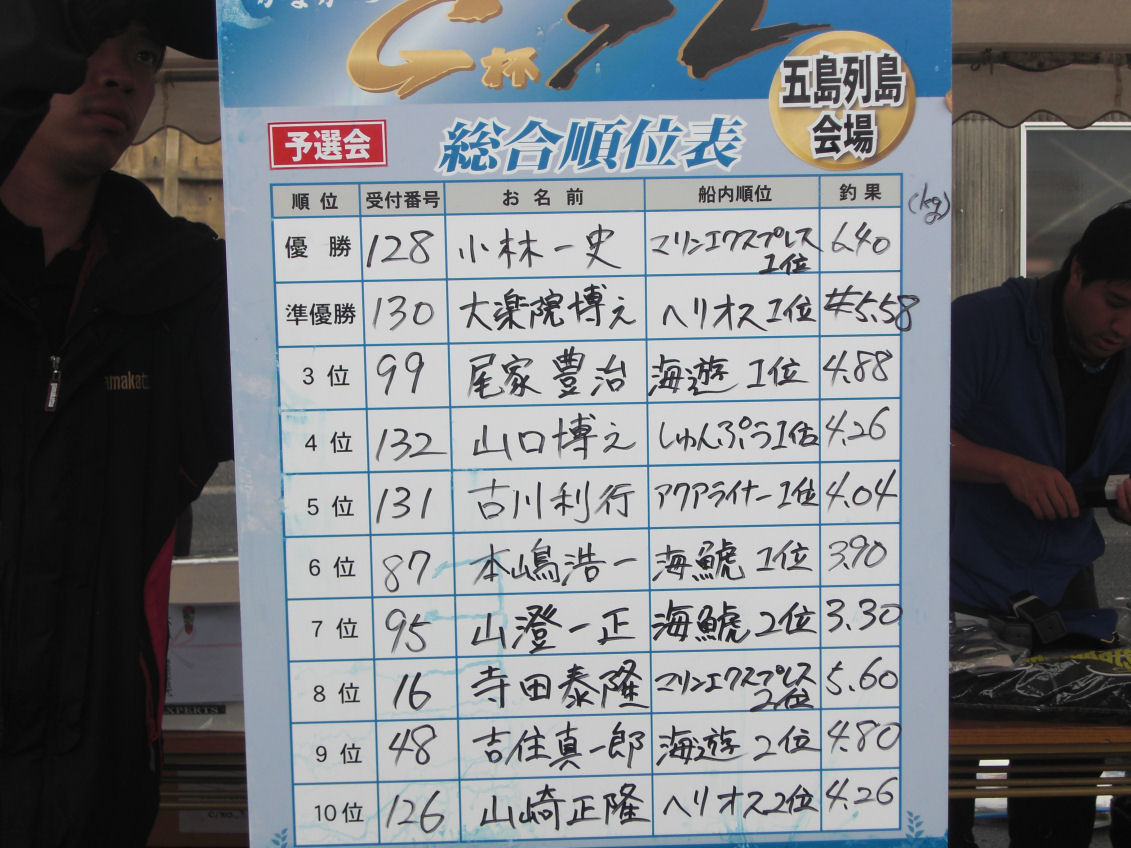 G杯グレ
五島列島
会場
予選会
総合順位表
順位 受付番号 お名前 船内順位 釣果 (kg)
優勝 128 小林一史 マリンエクスプレス 6.40
1位
準優勝 130 大楽院博之 ヘリオス1位 #5.58
3位 99 尾家豊治 海遊 1位 4.88
4位 132 山口博之 しゅんぷう1位 4.26
5位 131 古川利行 アクアライナー1位 4.04
6位 87 本嶋浩一 海鯱 1位 3.90
7位 95 山澄一正 海鯱 2位 3.30
8位 16 寺田泰隆 マリンエクスプレス 5.60
2位
9位 48 吉住真一郎 海遊 2位 4.80
10位 126 山崎正隆 ヘリオス2位 4.26
amakat
XPERTS